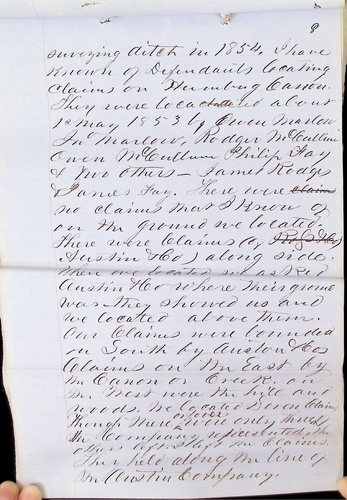 9
surveying ditch in 1854, I have
known of Defendants locating
claims on Humbug Canon.
They were located about
1st May 1853 by Owen Marlow
Jno Marlow, Rodger McCullum
Owen McCullum Philip Fay
& two others – James Rodge
& James Fay. There were claims
no claims that I know of
on the ground we located.
There were Claims (of
Austin & Co) along side.
When we located we asked
Austin & Co where their ground
was – they showed us and
we located above them.
Our Claims were bounded
on South by Austin & Cos
Claims on the East by
the Canon or Creek. on
the West were the hill and
woods. We located Seven Claims
though there were only three of
the Company
others the Claims.
They held along the line of
the Austin Company.